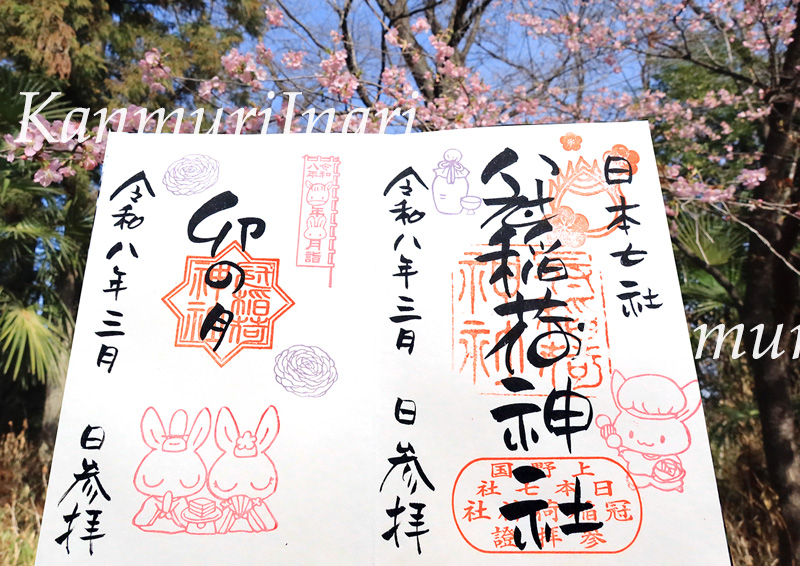 KanmuriInari
muri
日本七社
冠稲荷神社
令和八年三月　日参拝
上野国
日本七社
冠稲荷神社
參拝證
卯の月
冠稲荷神社
令和八年三月　日参拝
令和八年
月詣